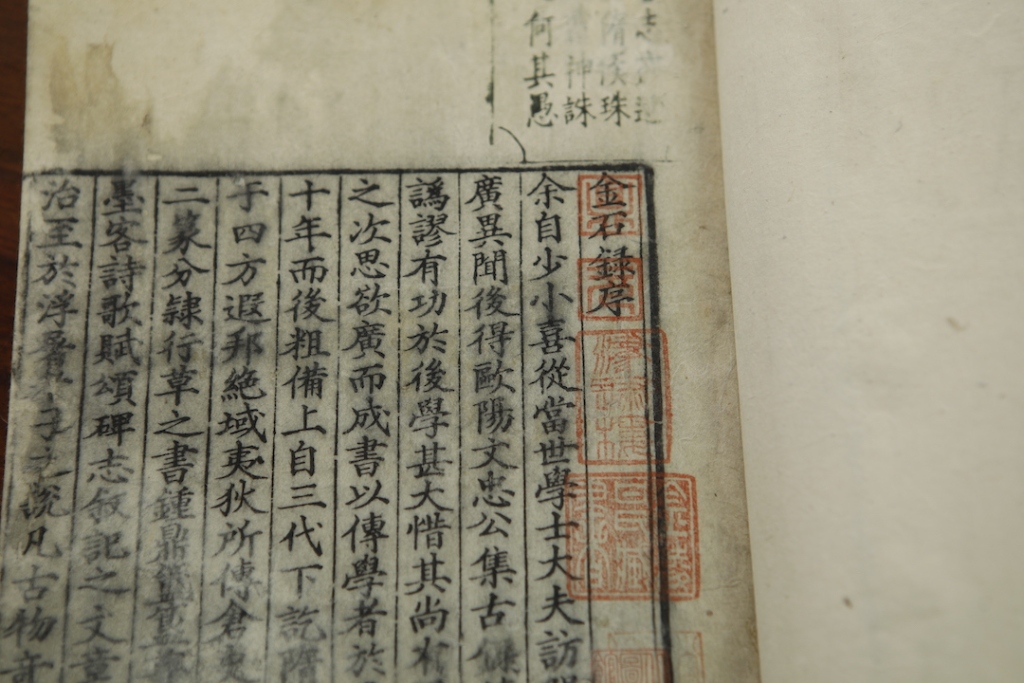 志
隋侯珠
神誅
何其愚
金石録序
余自少小喜從當世學士大夫訪
廣異聞後得歐陽文忠公集古
譌謬有功於後學甚大惜其尚有
之次思欲廣而成書以傳學者於
十年而後粗備上自三代下訖隋
于四方遐邦絶域夷狄所傳倉史
二篆分隸行草之書鍾鼎
墨客詩歌賦頌碑志敘記之文章
治至於浮屠老子之説凡古物奇